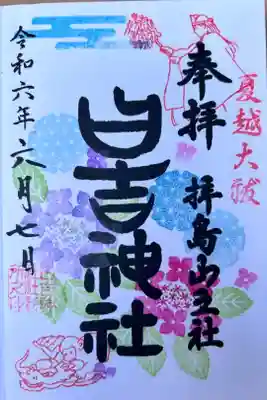 夏越大祓
奉拝
拝島山王社
日吉神社
令和六年六月七日